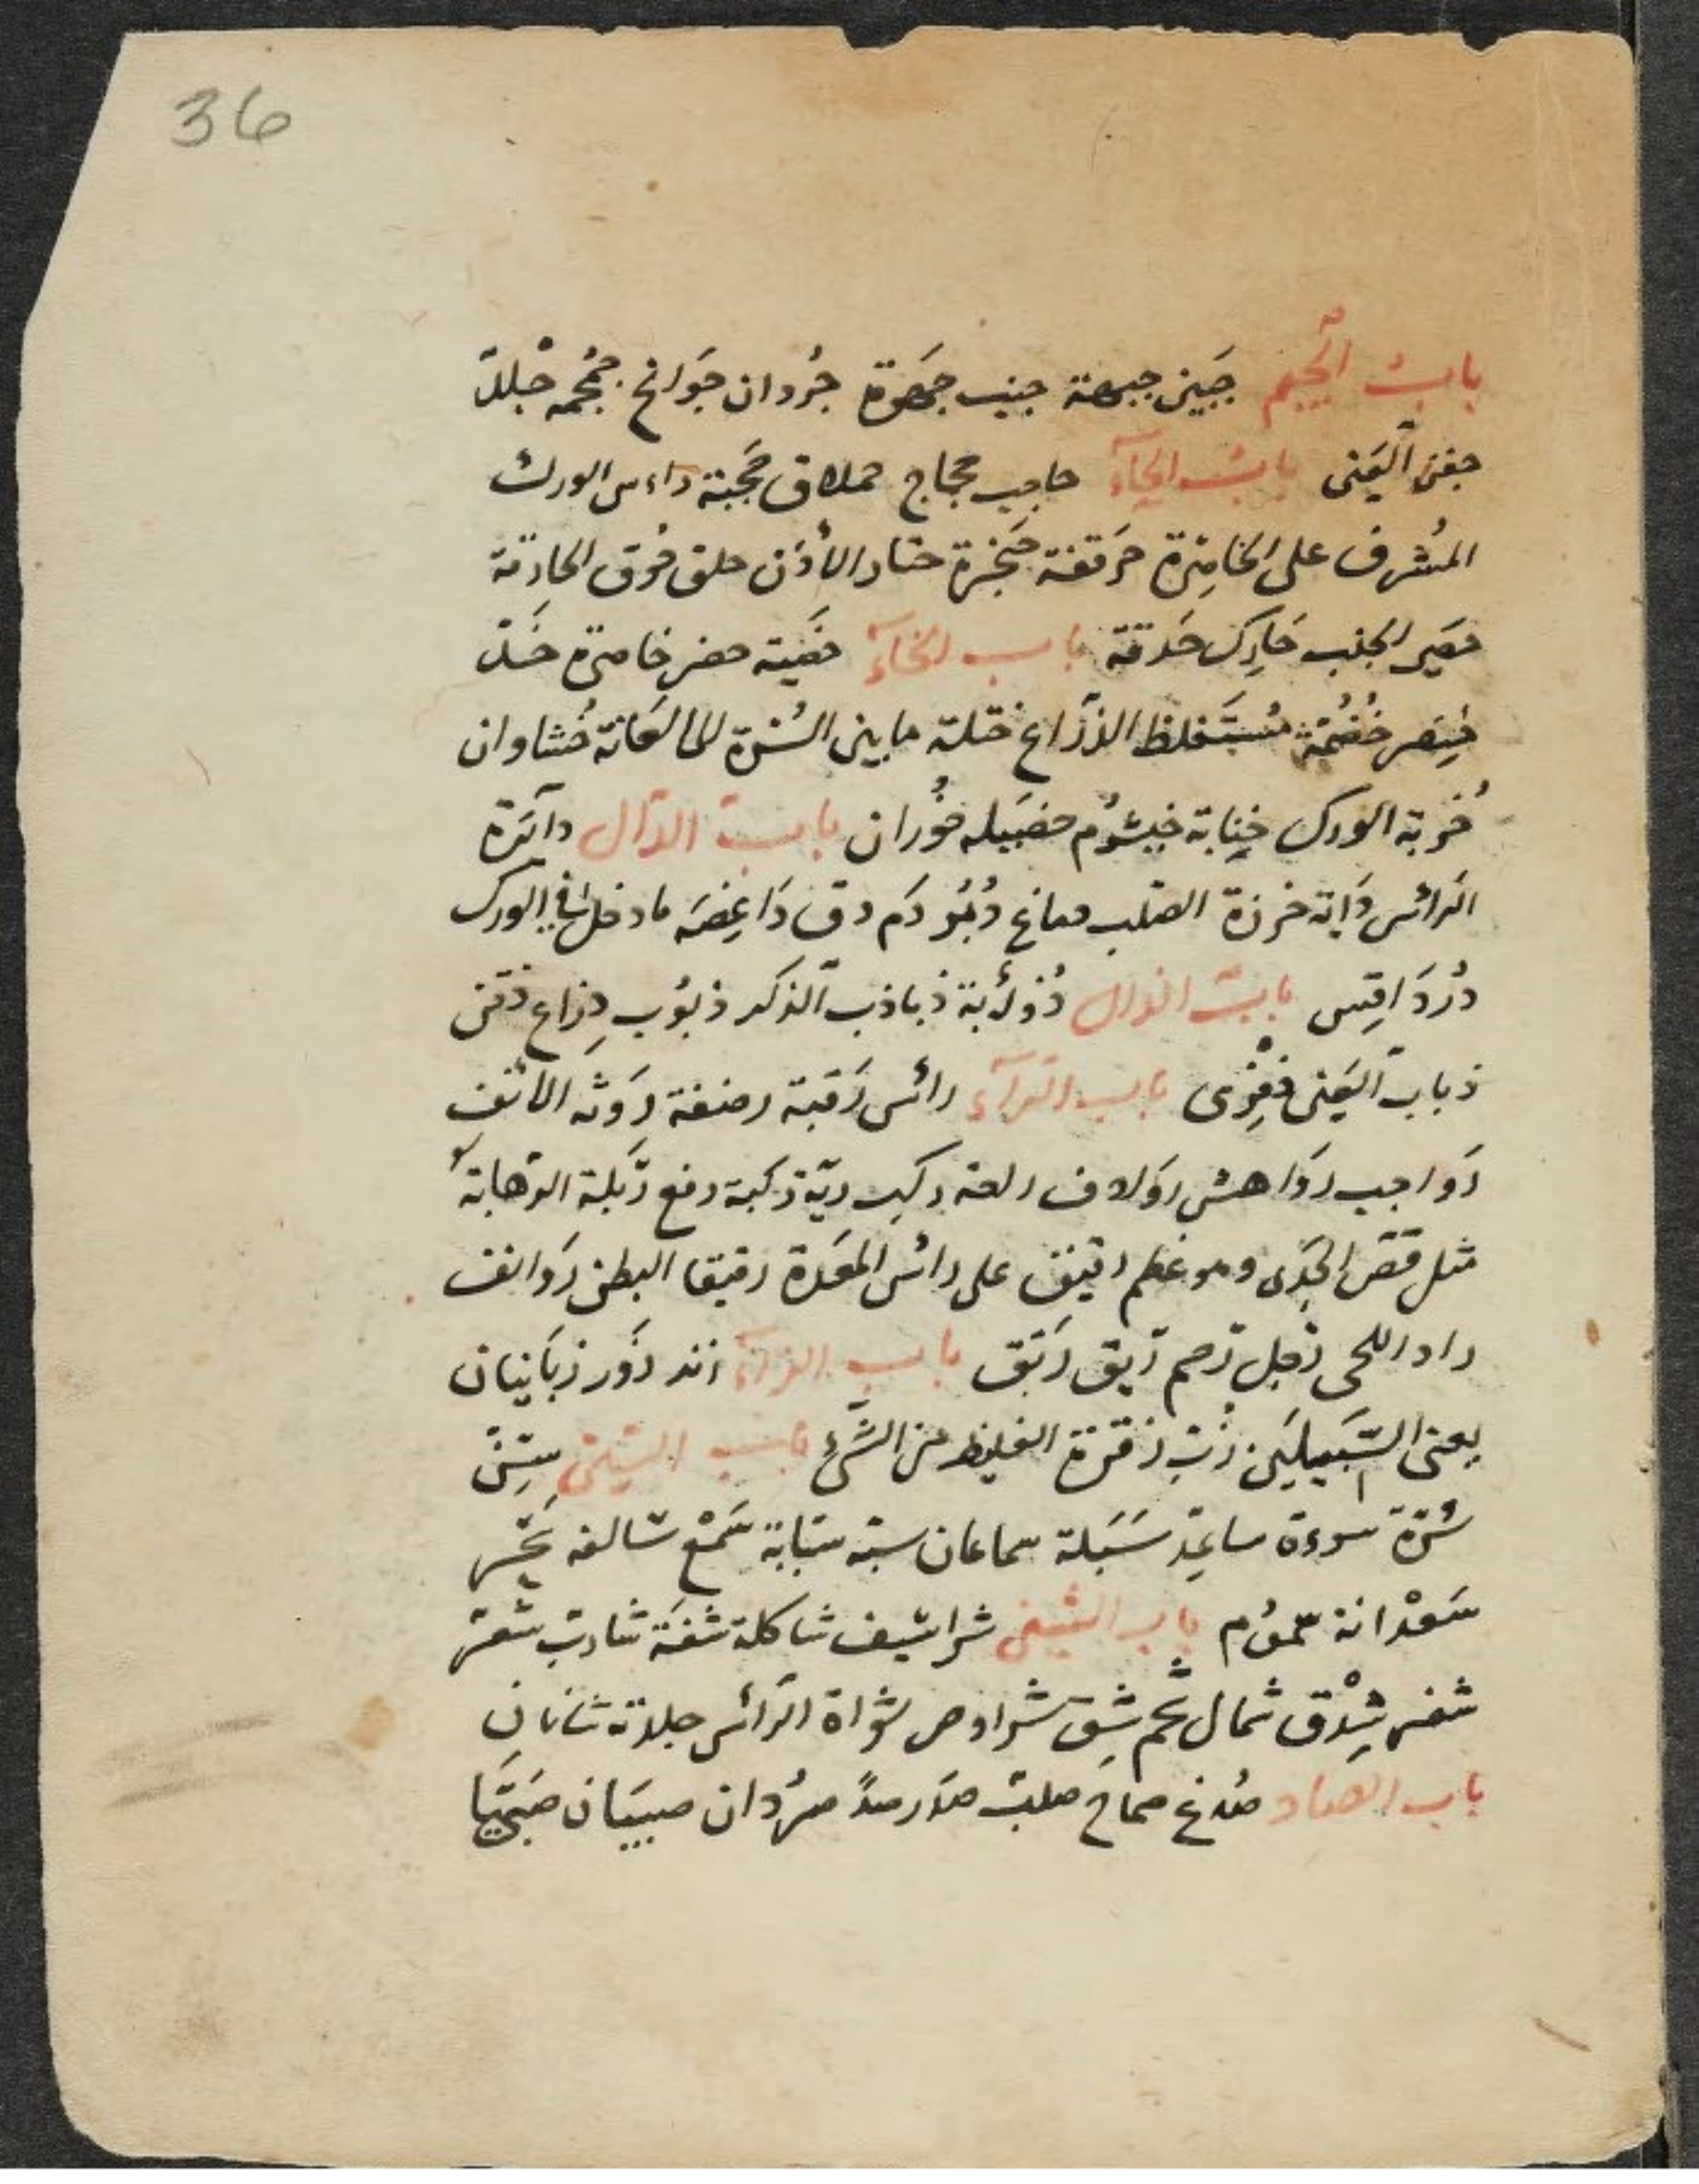 36
بابُ الجيم جَبين جبهة جنب جَمهرة جُردان جَوانح جُمجمه جْلد
جفن العَين بابُ الحآء حاجب حجاج حملاق حَجَبة راءس الورك
المُشرف على الخاصِرة حَرقفة حَنجرة حتار الأذن حلق حُرق الحارقة
حصَير الجنب حَارِك حَدقة باب الخآء خصَية خصر خاصرة خَد
خِنصر خُضُمّة مُستَغلظ الذرَاع خثلة ما بين السُرة الى العَانة خُششاوان
خُربة الورك خِنابة خيشُوم خصَيله خُوران بابُ الدّال دآئرة
الرَأس دَاية خرزة الصّلب دماغ دُبُر دَم دف دَاغِصَه ما دخل في الورك
دُردَاقِس بابُ الذال ذُؤابة ذباذب الذكر ذبُوب ذِراع ذقن
ذباب العَين ذِفرى باب الرآء رأس رَقبة رضفة رَوثه الأنف
رَواجب رَواهش رَوادف راحة ركب ريّة رَكبة رفع رَبلة الرّهابة
مثل قصّ الجَدى وهو عظم رقيق على رأس المَعدة رقيقا البطن رَوانف
رادا اللحى رَجل رَحم رَيق رَنق باب الزآء زند زَور زبَانيان
يعنى السَّبيلين زُبّ زفرة الغليظ من الشَّئ باب السّين سِنّ
سُرّة سوءة ساعِد سَبَلة سماعان سبه سبّابة سَمْع سَالفه سَحْر
سَعْدانة سمُوم باب الشين شراشيف شاكلة شفَة شارب شعر
شفر شِدْق شمال شَحم شِق شراوص شواة الرَأس جلدته شانانِ
باب الصاد صُدغ صماخ صلب صَدر صدَّ صُردان صبيَان صَبحَيا